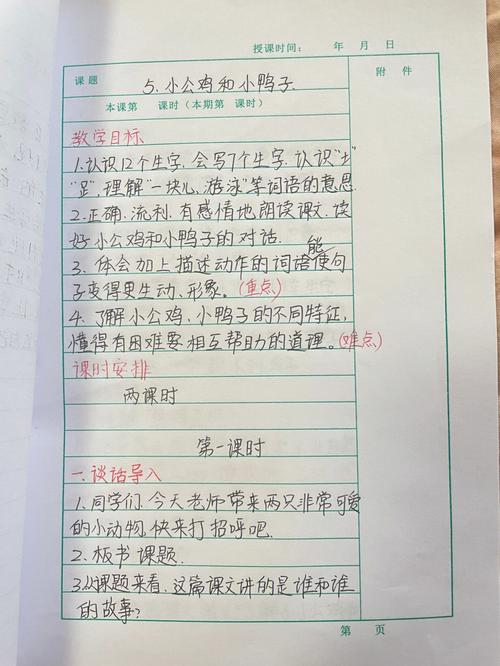 授课时间： 年 月 日
课题 5、小公鸡和小鸭子 附 件
本课第 课时（本期第 课时）
教学目标
1.认识12个生字.会写7个生字.认识"扌"
"𧾷".理解"一块儿,游泳"等词语的意思
2.正确.流利.有感情地朗读课文.读
好小公鸡和小鸭子的对话.
3、体会加上描述动作的词语能使句
子变得更生动、形象。(重点)
4、了解小公鸡、小鸭子的不同特征,
懂得有困难要相互帮助的道理。(难点)
课时安排
两课时
第一课时
一.谈话导入
1.同学们.今天老师带来两只非常可爱
的小动物.快来打招呼吧.
2、板书课题.
3.从课题来看.这篇课文讲的是谁和谁
的故事?
第 页